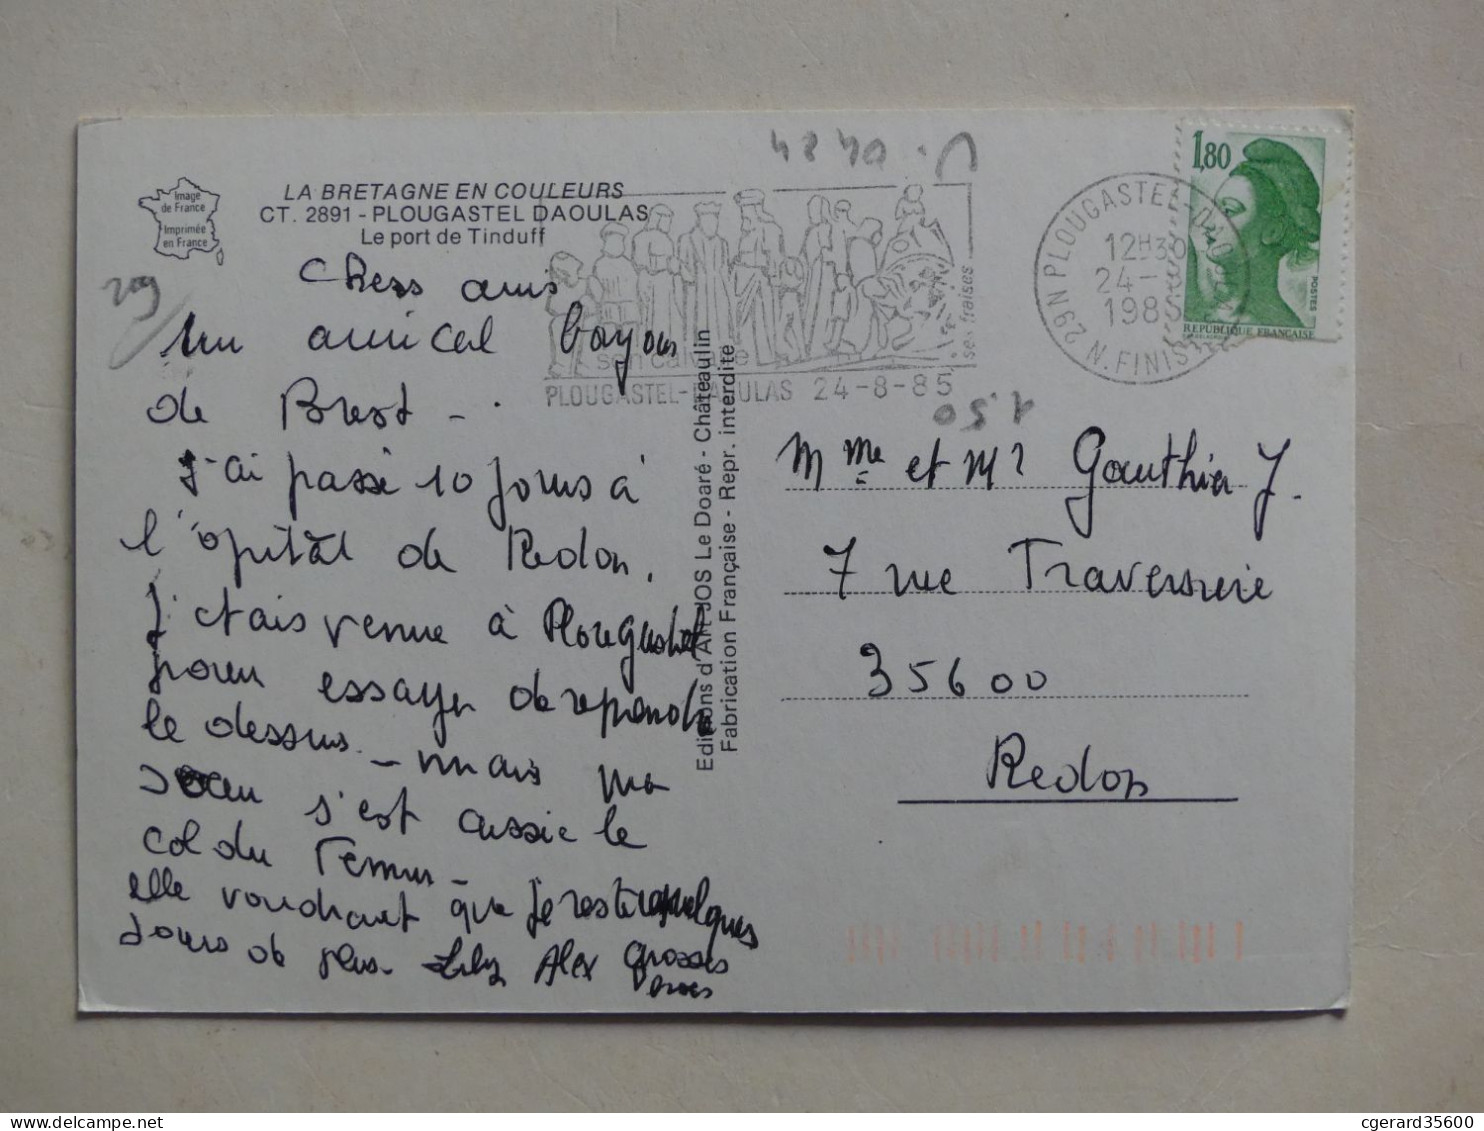 4840
Image
de France
Imprimée
en France
LA BRETAGNE EN COULEURS
CT. 2891 - PLOUGASTEL DAOULAS
Le port de Tinduff
29
Chers amis
Un amical
de Brest -
J'ai passé 10 jours à
l'opital de Redon.
J'étais venue à Plougastel
pour essayer de reprendre
le dessus - mais ma
soeur s'est cassée le
col du Femur -
elle voudrait que je reste quelques
Jours de plus. Alex Grosses
son calvaire
ses fraises
PLOUGASTEL-DAOULAS 24-8-85
29N PLOUGASTEL-DAOULAS
12H30
24-
1985
N. FINIST
1,80
POSTES
REPUBLIQUE FRANÇAISE
1.50
Editions d'Art JOS Le Doaré - Châteaulin
Fabrication Française - Repr. interdite
Mme et Mr Gauthier J.
7 rue Traversiere
35600
Redon
cgerard35600